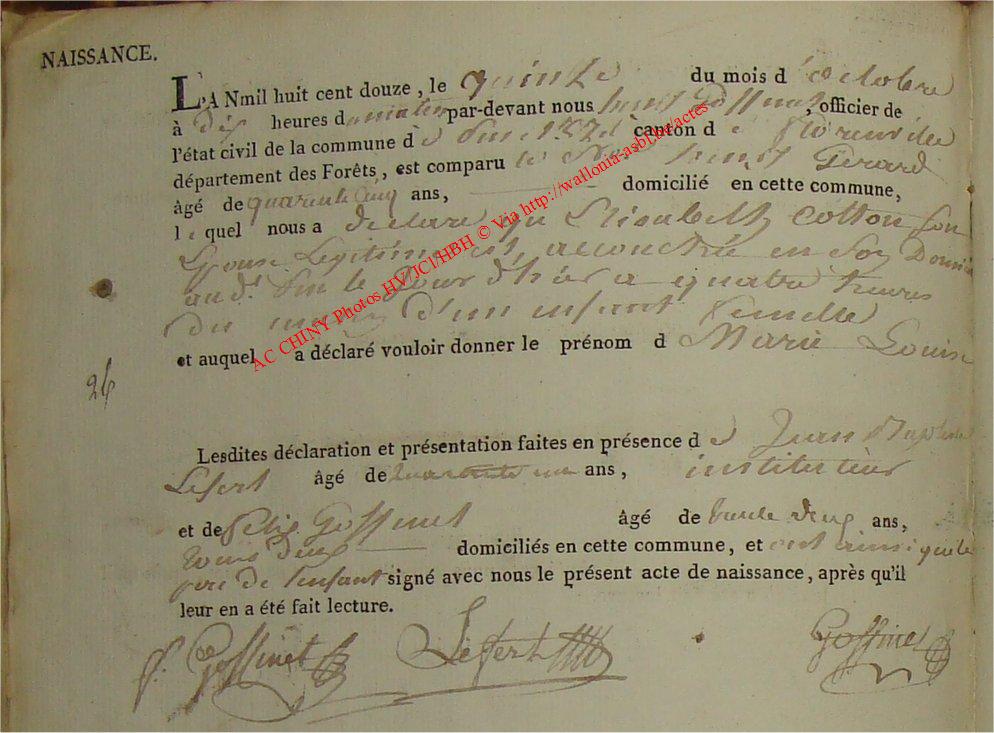 NAISSANCE.
L'AN mil huit cent douze, le quinze du mois d'octobre
à dix heures du matin par-devant nous Goffinet, officier de
l'état civil de la commune de canton de Florenville
département des Forêts, est comparu le Gerard
âgé de quarante cinq ans, domicilié en cette commune,
lequel nous a declaré qu' Elisabeth Cotton son
Epouse Legitime est accouchée en Son Domicile
le Jour d'hier a quatre heures
Du d'un enfant femelle
et auquel a déclaré vouloir donner le prénom de Marie Louise
26
Lesdites déclaration et présentation faites en présence de Jean Baptiste
Lefert âgé de quarante ans, instituteur
et de Goffinet âgé de trente deux ans,
tous deux domiciliés en cette commune, et ont ainsi que le
pere de l'enfant signé avec nous le présent acte de naissance, après qu'il
leur en a été fait lecture.
f. Goffinet Lefert Goffinet
AC CHINY Photos HV/JCl/HBH © Via http://wallonia-asbl.be/actes